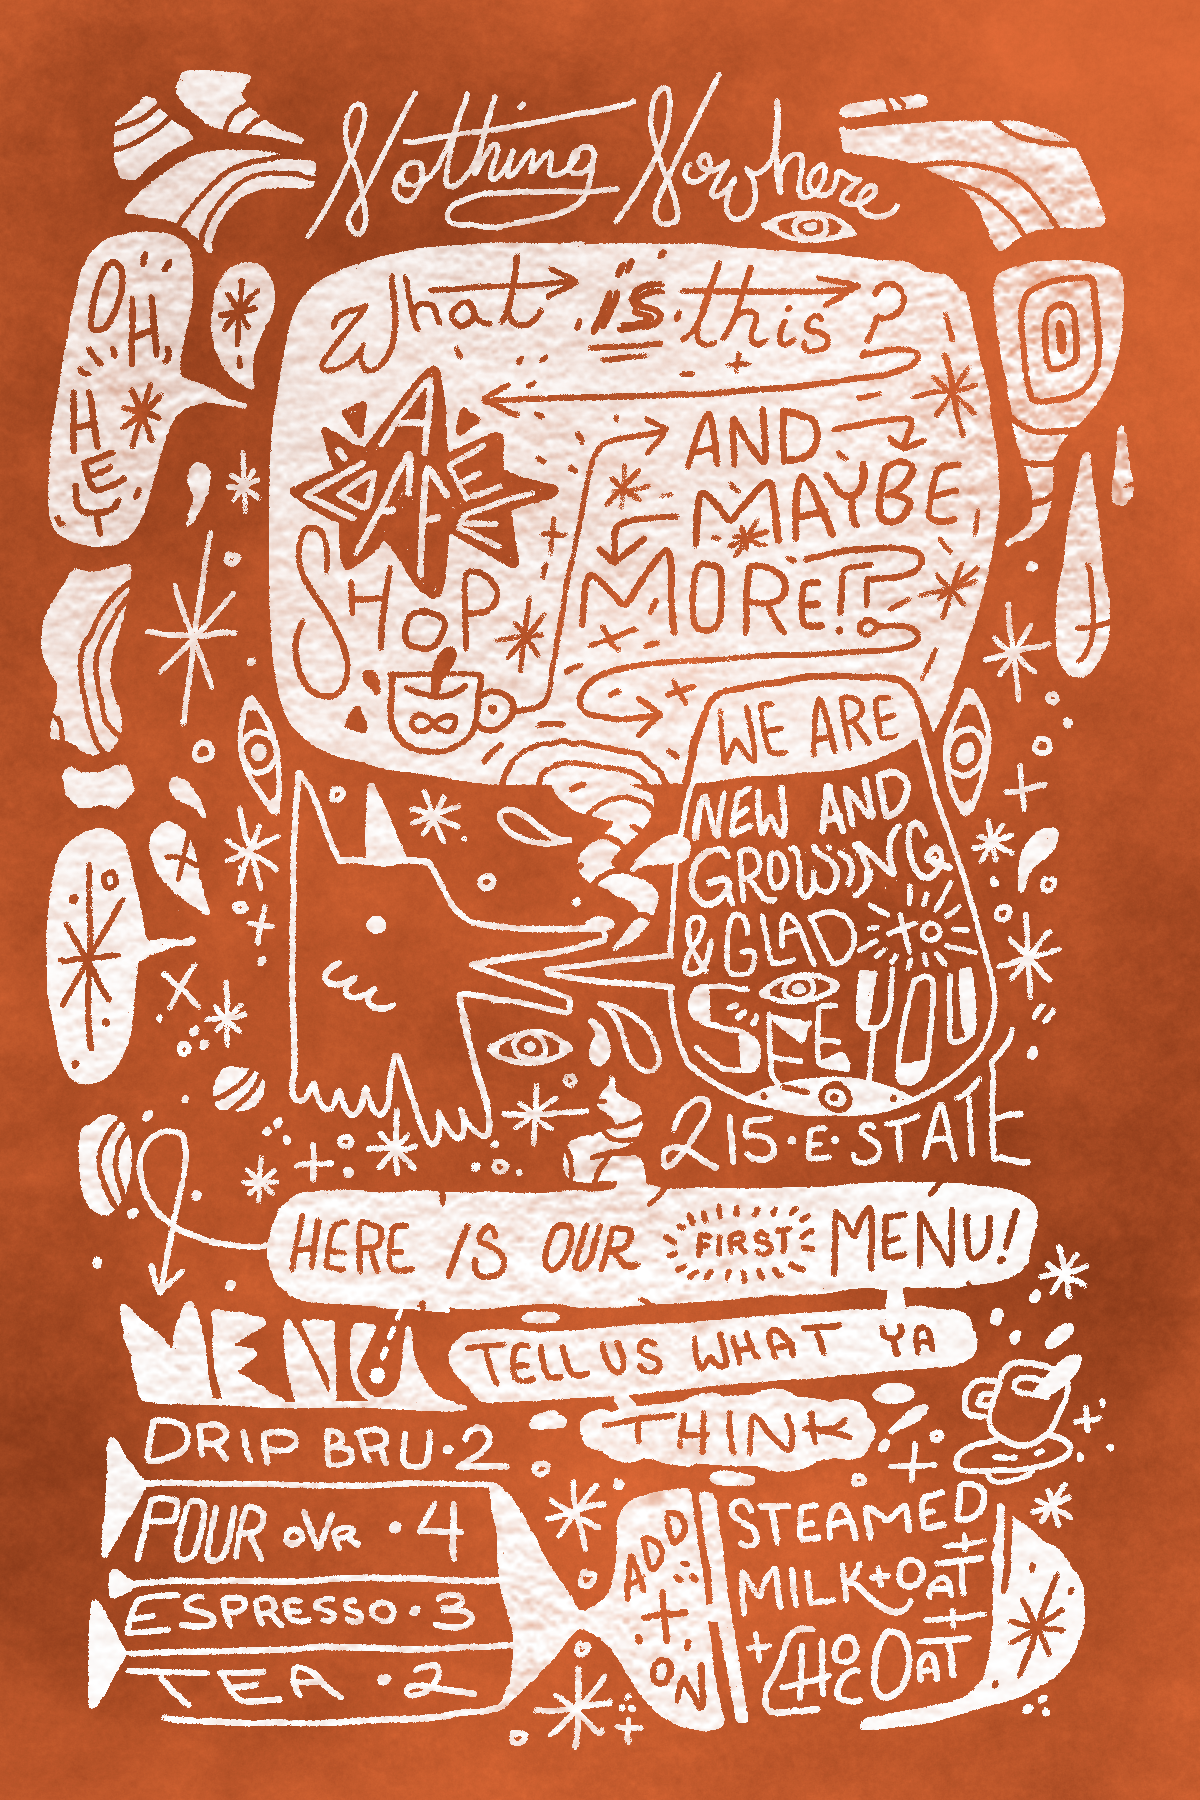 Nothing Nowhere
OH,
HEY
What is this?
A
CAFE
SHOP
AND
MAYBE
MORE!?
WE ARE
NEW AND
GROWING
& GLAD to
SEE YOU
215·E·STATE
HERE IS OUR FIRST MENU!
MENU
TELL US WHAT YA
THINK
DRIP BRU·2
POUR OVR ·4
ESPRESSO·3
TEA ·2
ADD
+
ON
STEAMED
MILK+OAT
+CHOCOAT